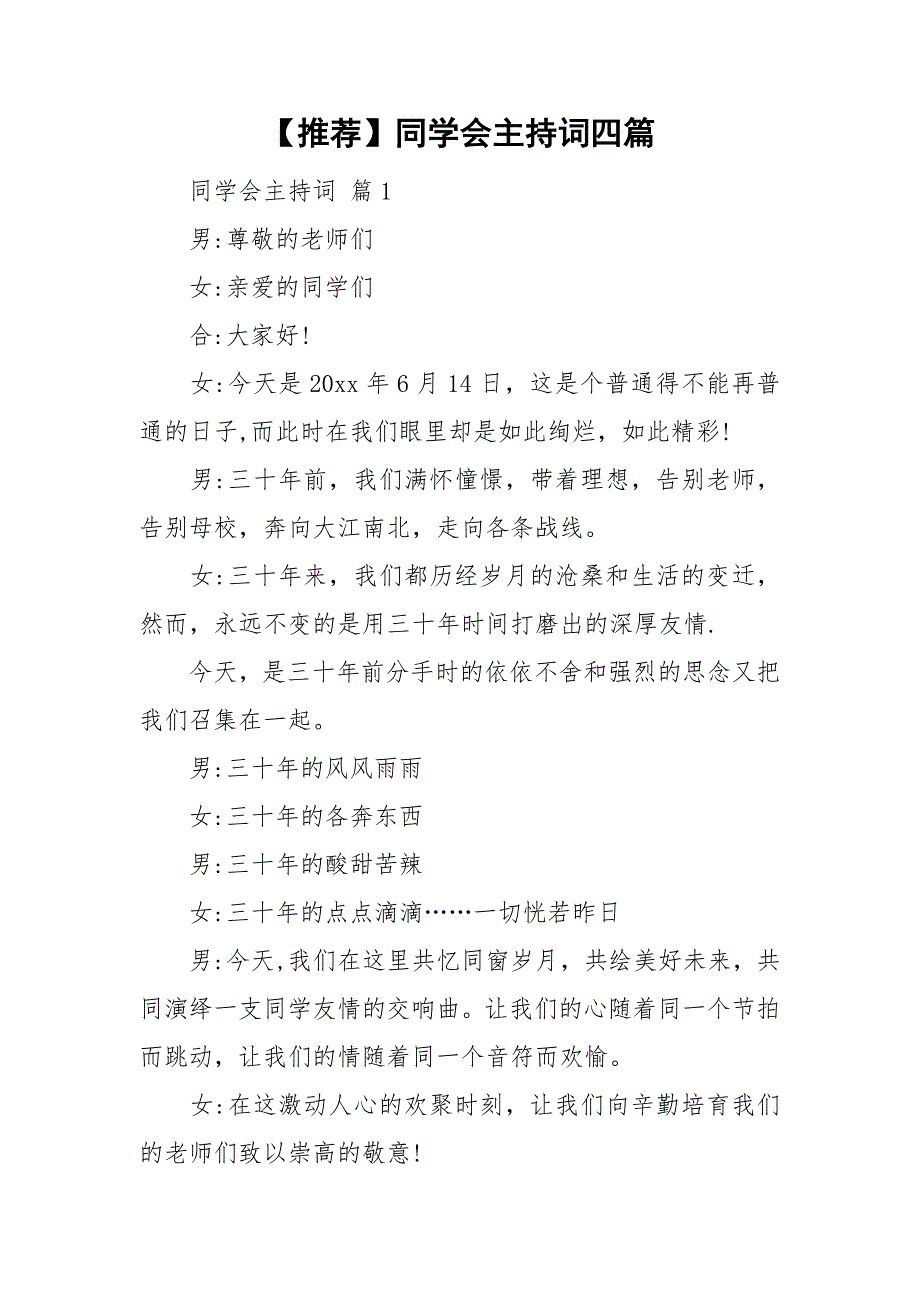 【推荐】同学会主持词四篇
同学会主持词 篇1
男:尊敬的老师们
女:亲爱的同学们
合:大家好!
女:今天是20xx年6月14日，这是个普通得不能再普
通的日子,而此时在我们眼里却是如此绚烂，如此精彩!
男:三十年前，我们满怀憧憬，带着理想，告别老师，
告别母校，奔向大江南北，走向各条战线。
女:三十年来，我们都历经岁月的沧桑和生活的变迁，
然而，永远不变的是用三十年时间打磨出的深厚友情.
今天，是三十年前分手时的依依不舍和强烈的思念又把
我们召集在一起。
男:三十年的风风雨雨
女:三十年的各奔东西
男:三十年的酸甜苦辣
女:三十年的点点滴滴……一切恍若昨日
男:今天,我们在这里共忆同窗岁月，共绘美好未来，共
同演绎一支同学友情的交响曲。让我们的心随着同一个节拍
而跳动，让我们的情随着同一个音符而欢愉。
女:在这激动人心的欢聚时刻，让我们向辛勤培育我们
的老师们致以崇高的敬意!